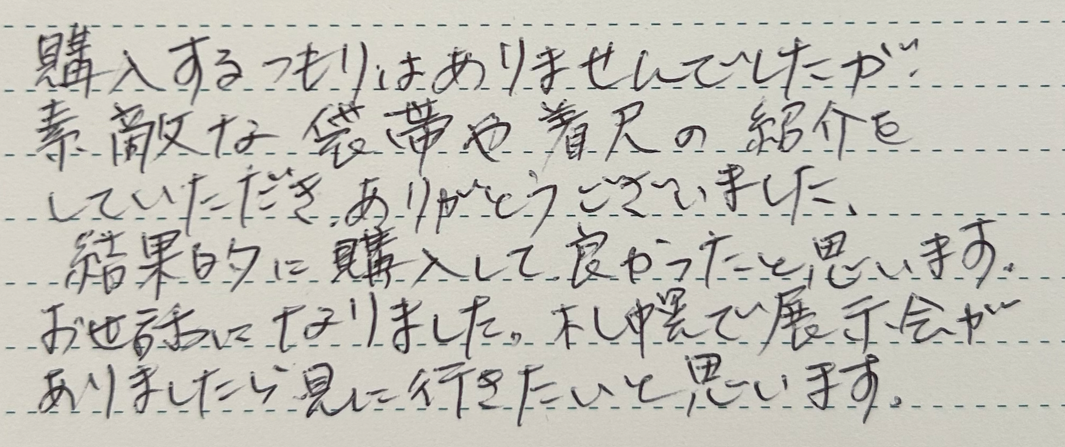 購入するつもりはありませんでしたが、
素敵な袋帯や着尺の紹介を
していただき、ありがとうございました。
結果的に購入して良かったと思います。
お世話になりました。札幌で展示会が
ありましたら見に行きたいと思います。